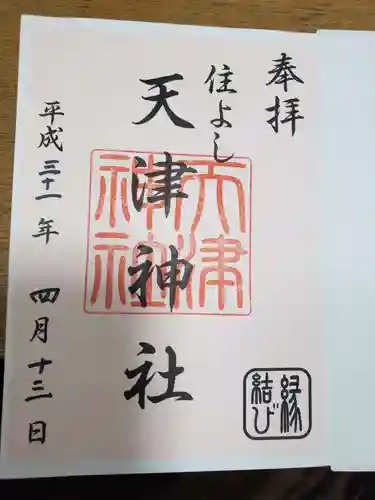 奉拝
住よし
天津神社
天津神社
平成三十一年 四月十三日
縁結び